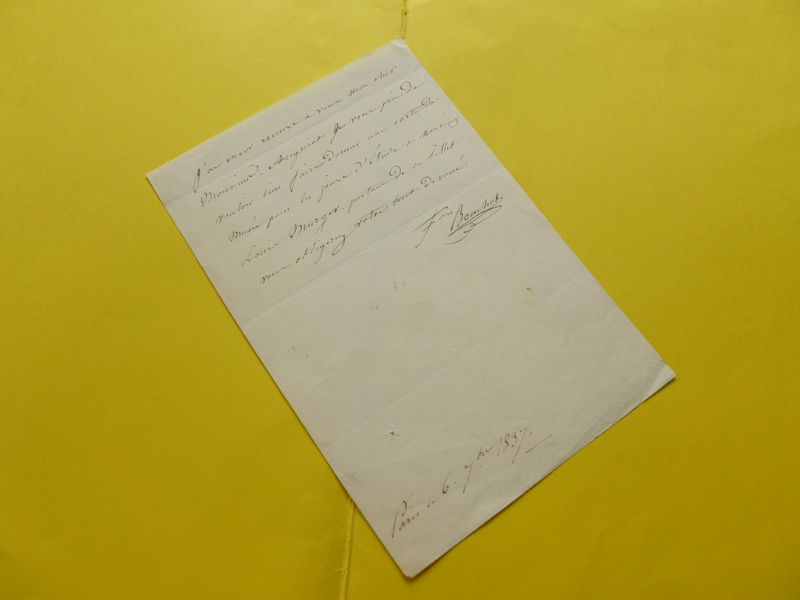 J'ai encor recours a vous mon cher
Monsieur, je vous prie de
vouloir bien faire donner une carte de
Musée pour les jours d'Étude a Monsieur
Louis Murger, porteur de ce billet
vous obligerez votre tout dévoué
F.ois Bouchot
Paris ce 6. 7bre 1837.